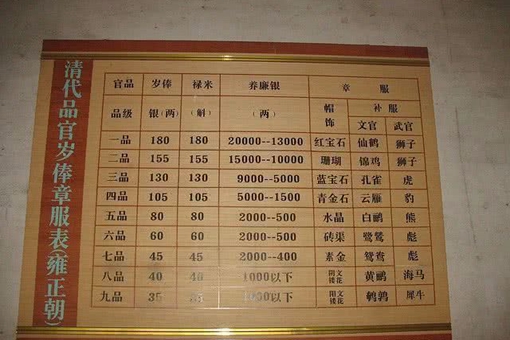 清代品官岁俸章服表(雍正朝)
官品 岁俸 禄米 养廉银 章 服
品级 银(两) (斛) (两) 帽饰 补 服
文官 武官
一品 180 180 20000--13000 红宝石 仙鹤 狮子
二品 155 155 15000--10000 珊瑚 锦鸡 狮子
三品 130 130 9000--5000 蓝宝石 孔雀 虎
四品 105 105 5000--1500 青金石 云雁 豹
五品 80 80 2000--500 水晶 白鹇 熊
六品 60 60 2000--500 砗渠 鹭鸶 彪
七品 45 45 2000--400 素金 鸳鸯 彪
八品 40 40 1000以下 阴文镂花 黄鹂 海马
九品 35 以下 阳文镂花 鹌鹑 犀牛